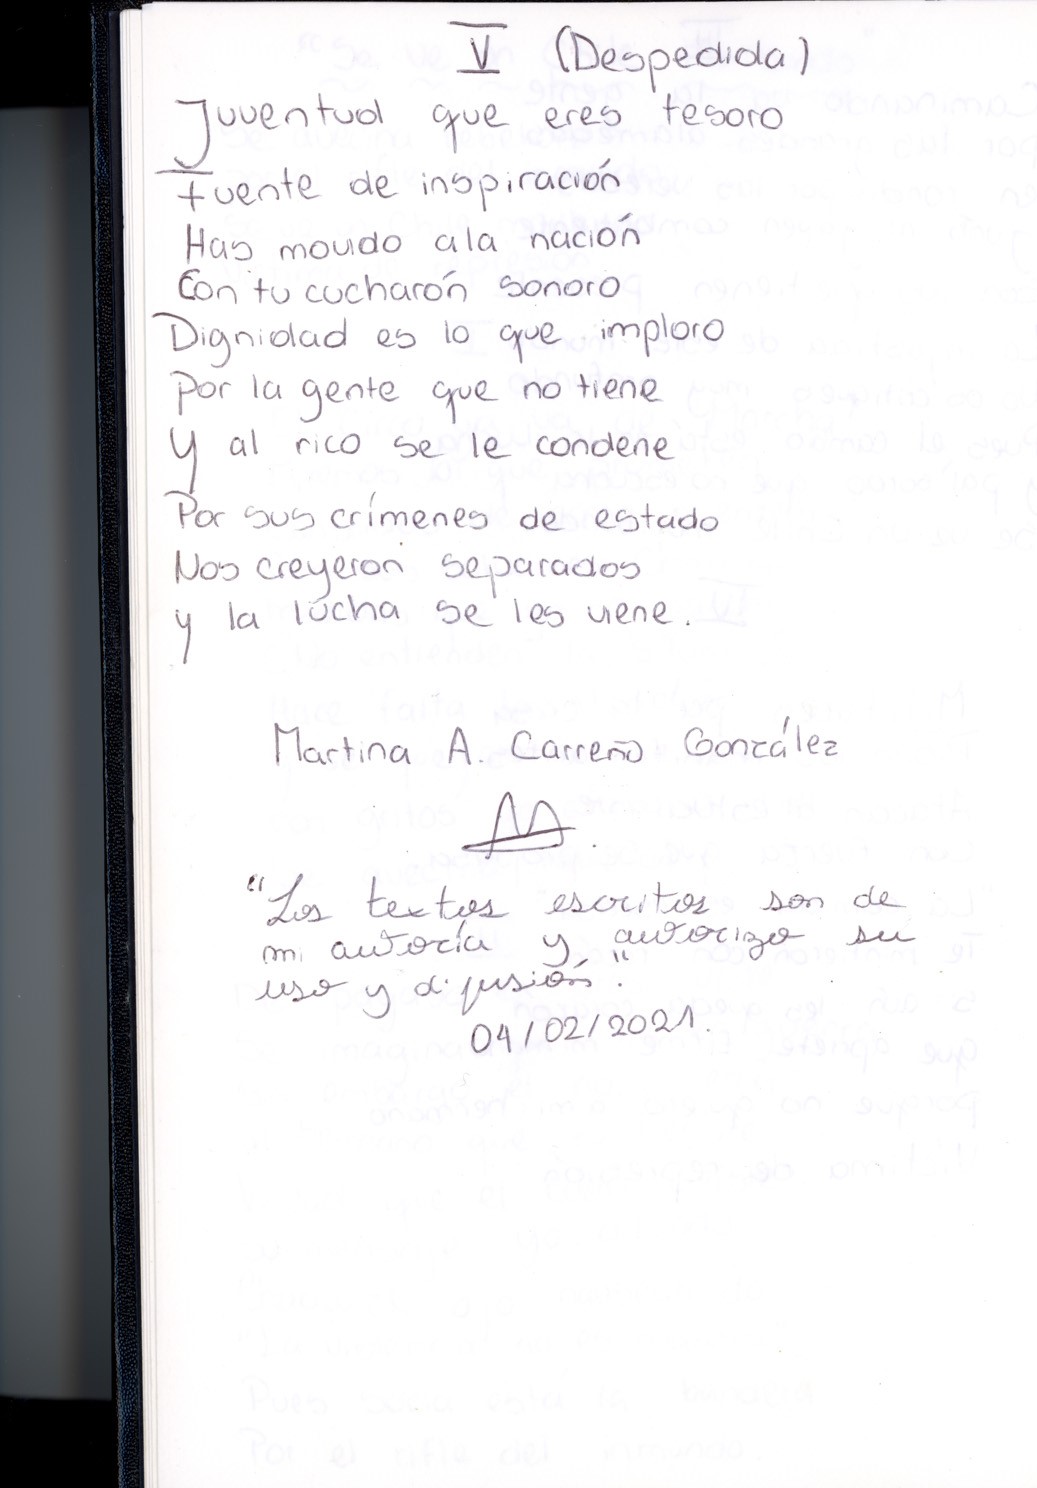 V (Despedida)
Juventud que eres tesoro
fuente de inspiración
Has movido a la nación
Con tu cucharón sonoro
Dignidad es lo que imploro
Por la gente que no tiene
Y al rico se le condene
Por sus crímenes de estado
Nos creyeron separados
y la lucha se les viene.
Martina A. Carreño González
"Los textos escritos son de
mi autoría y autorizo su
uso y difusión".
04/02/2021.